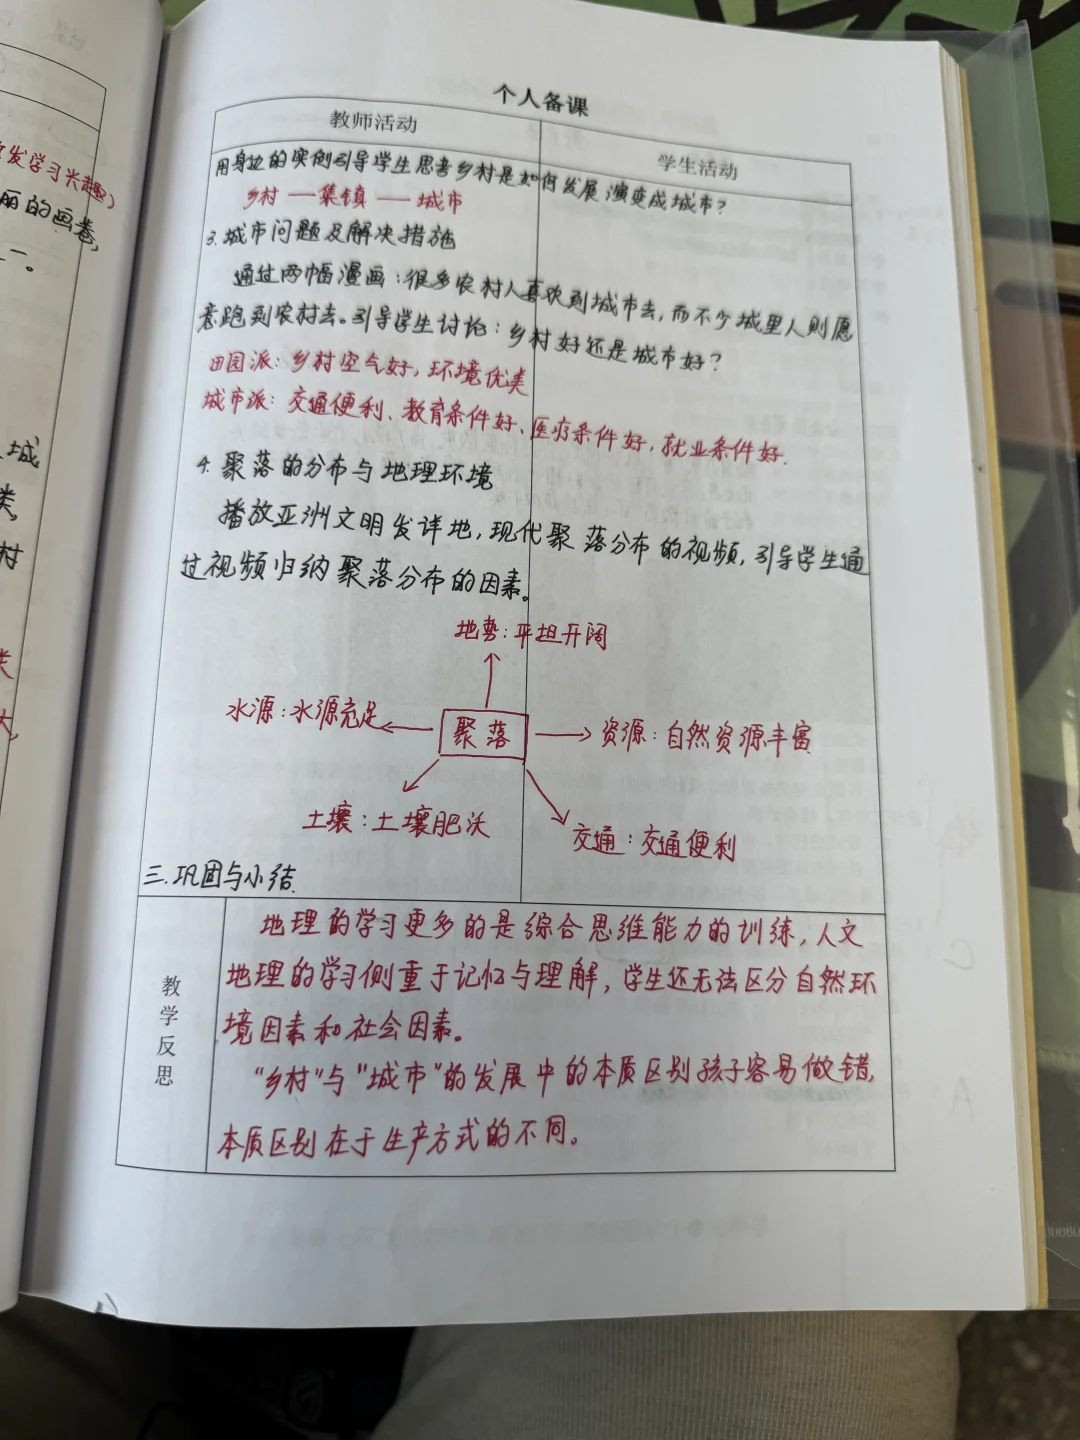 发学习兴趣)
丽的画卷,
一。
城
类,
村
类
大,
个人备课
教师活动
学生活动
用身边的实例引导学生思考乡村是如何发展演变成城市?
乡村 — 集镇 — 城市
3.城市问题及解决措施
通过两幅漫画:很多农村人喜欢到城市去,而不少城里人则愿
意跑到农村去。引导学生讨论:乡村好还是城市好?
田园派:乡村空气好,环境优美
城市派:交通便利、教育条件好、医疗条件好,就业条件好.
4.聚落的分布与地理环境
播放亚洲文明发详地,现代聚落分布的视频,引导学生通
过视频归纳聚落分布的因素。
地势:平坦开阔
水源:水源充足
聚落
资源:自然资源丰富
土壤:土壤肥沃
交通:交通便利
三.巩固与小结
教学反思
地理的学习更多的是综合思维能力的训练,人文
地理的学习侧重于记忆与理解,学生还无法区分自然环
境因素和社会因素。
"乡村"与"城市"的发展中的本质区别孩子容易做错,
本质区别在于生产方式的不同。